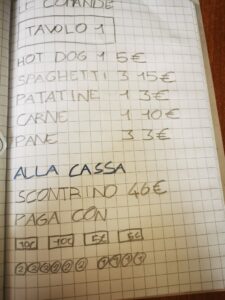 LE COMANDE
TAVOLO 1
HOT DOG 1 5€
SPAGHETTI 3 15€
PATATINE 1 3€
CARNE 1 10€
PANE 3 3€
ALLA CASSA
SCONTRINO 46€
PAGA CON
10€ 10€ 5€ 5€
2 2 2 2 2 2 1 1 1 1